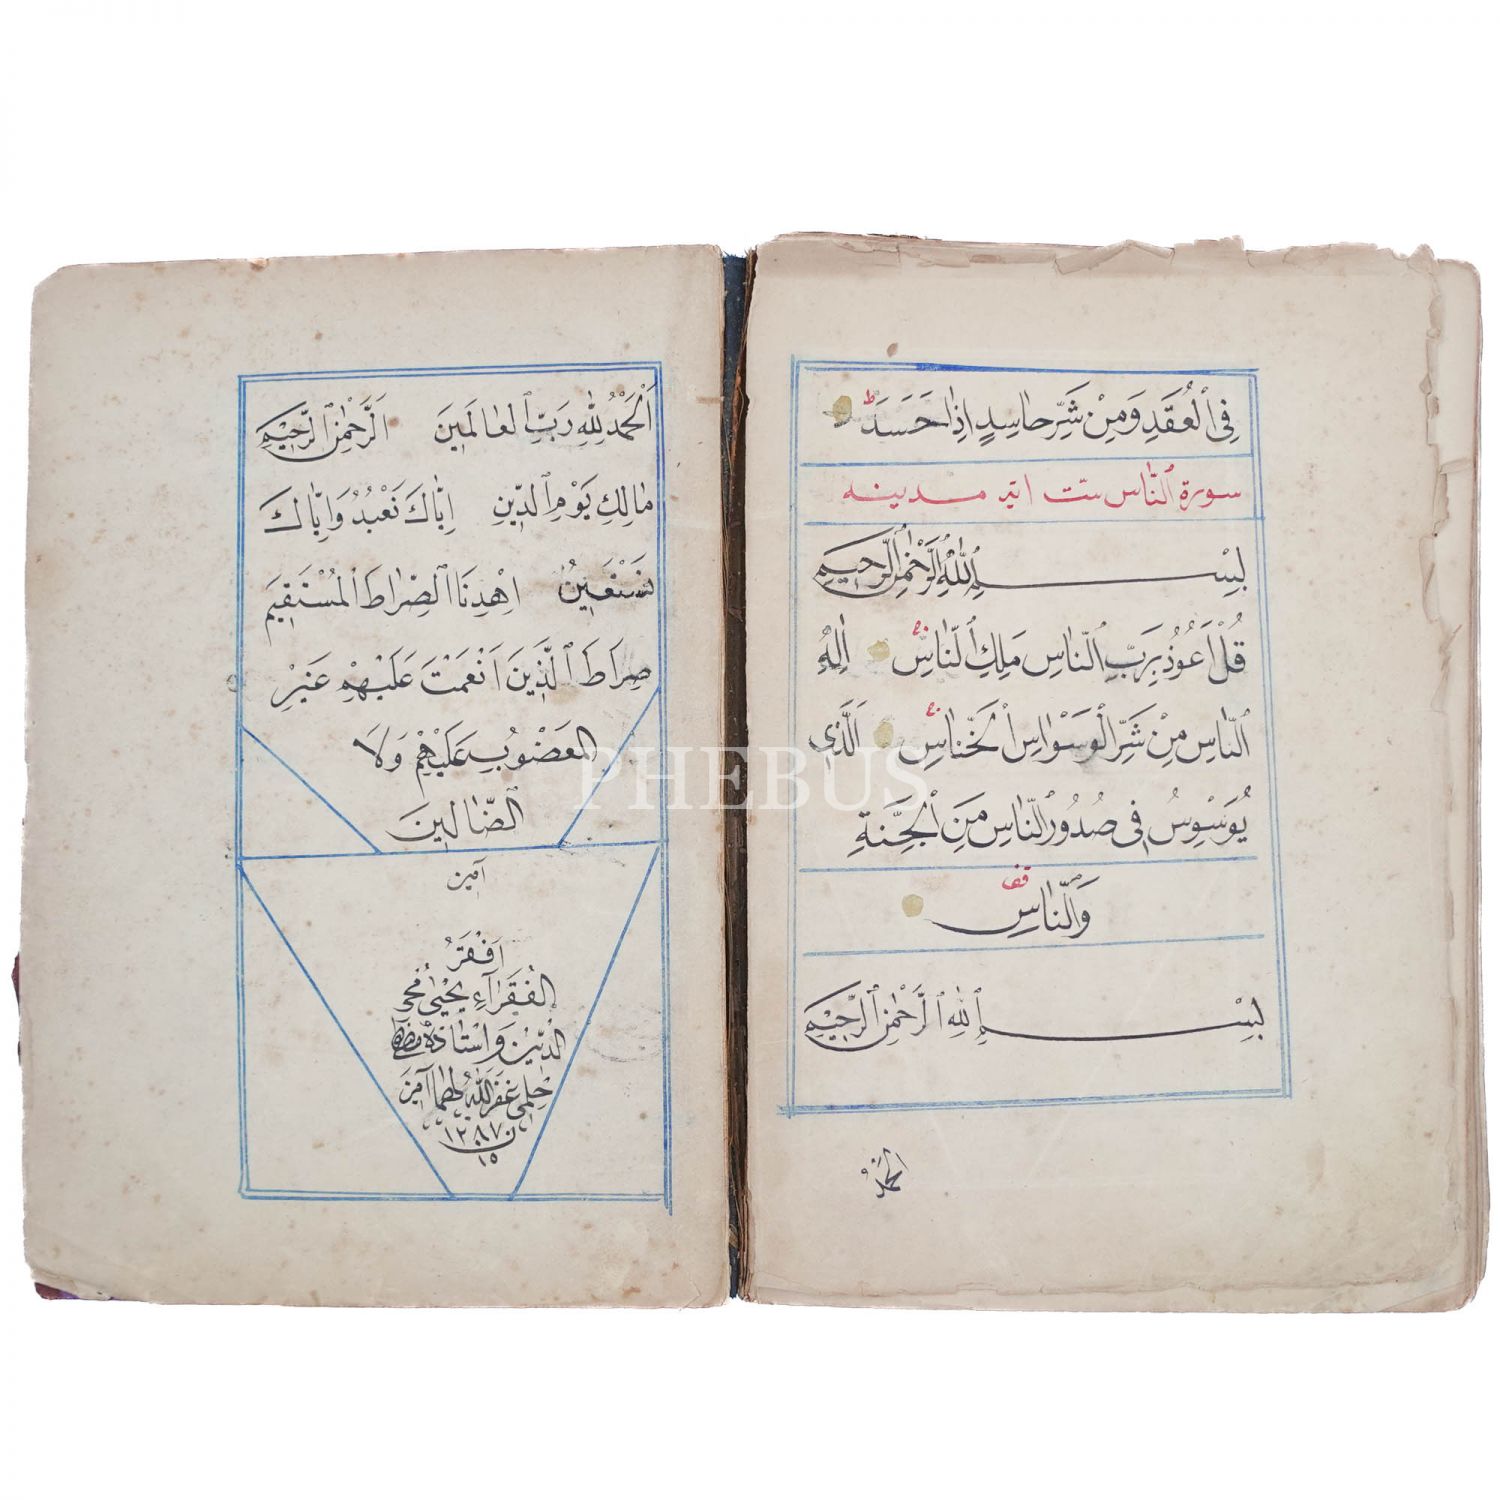 فِى الْعُقَدِ وَمِنْ شَرِّ حَاسِدٍ اِذَا حَسَدَ ط
سورة الناس ست ايه مدينه
بِسْمِ اللّٰهِ الرَّحْمٰنِ الرَّحِيمِ
قُلْ اَعُوذُ بِرَبِّ النَّاسِ مَلِكِ النَّاسِ اِلٰهِ
النَّاسِ مِنْ شَرِّ الْوَسْوَاسِ الْخَنَّاسِ اَلَّذِى
يُوَسْوِسُ فِى صُدُورِ النَّاسِ مِنَ الْجِنَّةِ
وَالنَّاسِ
قف
بِسْمِ اللّٰهِ الرَّحْمٰنِ الرَّحِيمِ
الْحَمْدُ
اَلْحَمْدُ لِلّٰهِ رَبِّ الْعَالَمِينَ اَلرَّحْمٰنِ الرَّحِيمِ
مَالِكِ يَوْمِ الدِّينِ اِيَّاكَ نَعْبُدُ وَاِيَّاكَ
نَسْتَعِينُ اهْدِنَا الصِّرَاطَ الْمُسْتَقِيمَ
صِرَاطَ الَّذِينَ اَنْعَمْتَ عَلَيْهِمْ غَيْرِ
الْمَغْضُوبِ عَلَيْهِمْ وَلَا
الضَّالِّينَ
آمين
اَفْقَرُ
الْفُقَرَاءِ يحيى محى
الدين وَاسْتَاذه
حلمى غَفَرَ اللّٰهُ لهما آمين
ن ١٢٨٧
١٥
PHEBUS